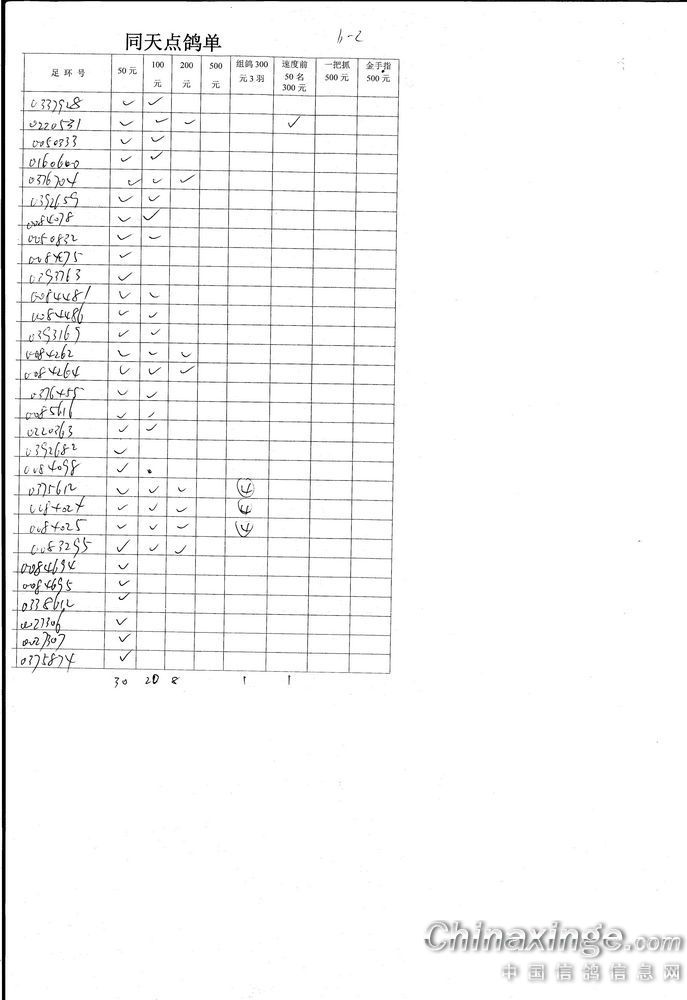 同天点鸽单
6-2
足环号 50元 100元 200元 500元 组鸽300元3羽 速度前50名300元 一把抓500元 金手指500元
0337928 ✓ ✓
0220531 ✓ ✓ ✓ ✓
0050333 ✓ ✓
0160600 ✓ ✓
0376704 ✓ ✓ ✓
0392659 ✓ ✓
0084078 ✓ ✓
0050832 ✓ ✓
0084675 ✓
0393763 ✓
0084481 ✓ ✓
0084486 ✓ ✓
0393169 ✓ ✓
0084262 ✓ ✓ ✓
0084264 ✓ ✓ ✓
0376455 ✓ ✓
0085616 ✓ ✓
0220363 ✓ ✓
0392682 ✓
0084098 ✓
0375612 ✓ ✓ ✓ ④
0084024 ✓ ✓ ✓ ④
0084025 ✓ ✓ ✓ ④
0083295 ✓ ✓ ✓
0084694 ✓
0084695 ✓
0338612 ✓
0027306 ✓
0027307 ✓
0375874 ✓
30 20 8 1 1
Chinaxinge.com
中国信鸽信息网